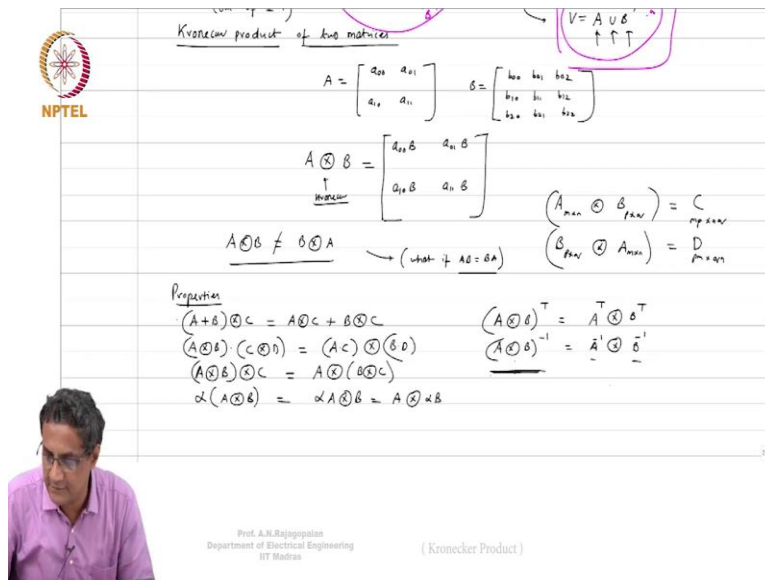 Kronecker product of two matrices
V = A ∪ B
NPTEL
A = [ a₀₀ a₀₁
a₁₀ a₁₁ ]
B = [ b₀₀ b₀₁ b₀₂
b₁₀ b₁₁ b₁₂
b₂₀ b₂₁ b₂₂ ]
A ⊗ B = [ a₀₀ B a₀₁ B
a₁₀ B a₁₁ B ]
Kronecker
(A m×n ⊗ B p×q) = C mp×nq
(B p×q ⊗ A m×n) = D pm×qn
A⊗B ≠ B⊗A
(what if AB = BA)
Properties
(A+B)⊗C = A⊗C + B⊗C
(A⊗B)·(C⊗D) = (AC)⊗(BD)
(A⊗B)⊗C = A⊗(B⊗C)
α(A⊗B) = αA⊗B = A⊗αB
(A⊗B)ᵀ = Aᵀ⊗Bᵀ
(A⊗B)⁻¹ = A⁻¹⊗B⁻¹
Prof. A.N.Rajagopalan
Department of Electrical Engineering
IIT Madras
( Kronecker Product )